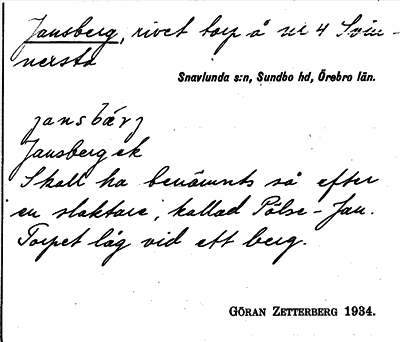 Jansberg, rivet torp å nr 4 Svin-
nersta
Snavlunda s:n, Sundbo hd, Örebro län.
jansbärj
Jansberg ek
Skall ha benämnts så efter
en slaktare, kallad Pölse-Jan.
Torpet låg vid ett berg.
GÖRAN ZETTERBERG 1934.